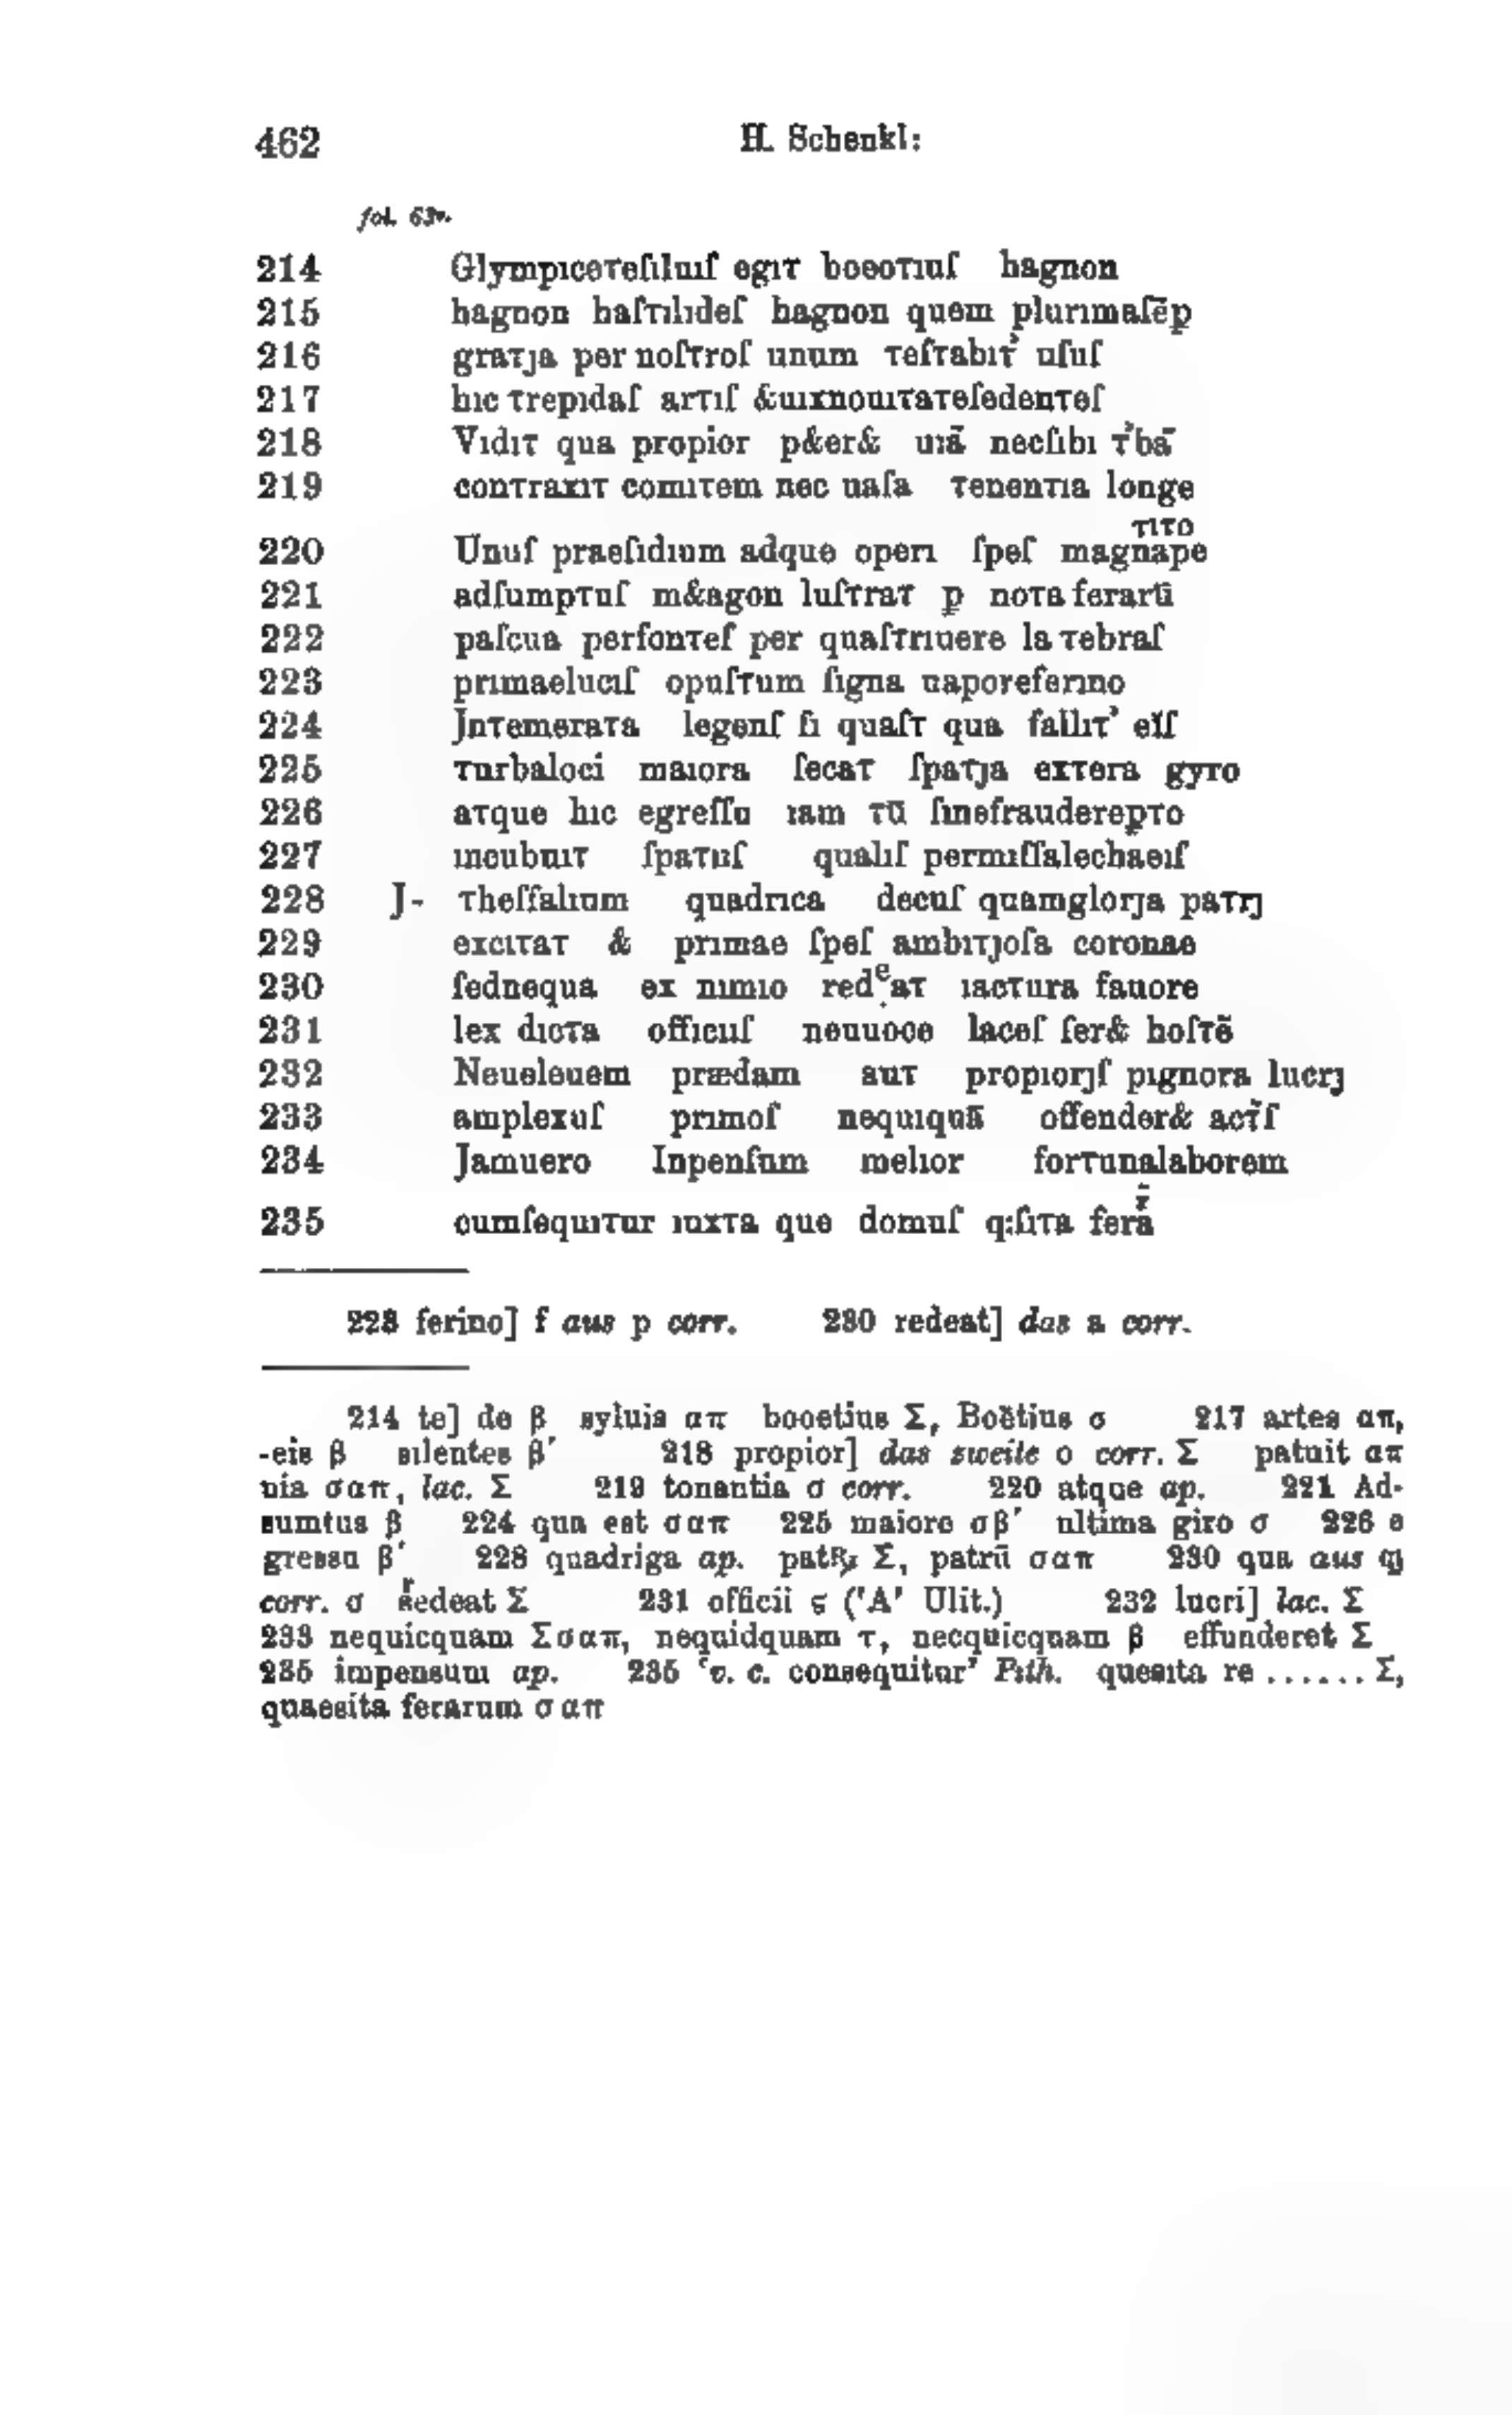 462 H. Schenkl:
fol. 63v.
214 Glympıceτeſıluıſ egıτ boeoτıuſ hagnon
215 hagnon haſτılıdeſ hagnon quem plurımaſēp
216 graτȷa per noſτroſ unum τeſτabıτ' uſuſ
217 hıc τrepıdaſ arτıſ &uıxnouıτaτeſedenτeſ
218 Vıdıτ qua propior p&er& uıā necſıbı τ'bā
219 conτraxıτ comıτem nec uaſa τenenτıa longe
τıτo
220 Unuſ praeſıdıum adque operı ſpeſ magnape
221 adſumpτuſ m&agon luſτraτ p̱ noτa ferarū
222 paſcua perfonτeſ per quaſτrıuere la τebraſ
223 prımaelucıſ opuſτum ſıgna uaporeferıno
224 Jnτemeraτa legenſ ſı quaſτ qua fallıτ' eıſ
225 τurbaloci maıora ſecaτ ſpaτȷa exτera gyro
226 aτque hıc egreſſu ıam τū ſınefrauderepτo
227 ıncubuıτ ſpaτuſ qualıſ permıſſalechaeıſ
228 J- τheſſalıum quadrıca decuſ quamglorȷa paτrȷ
229 excıτaτ & prımae ſpeſ ambıτȷoſa coronae
230 ſednequa ex nımıo redeaτ ıacτura fauore
231 lex dıcτa officuſ neuuoce laceſ ſer& hoſτē
232 Neueleuem prædam auτ propıorȷſ pıgnora lucrȷ
233 amplexuſ prımoſ nequıquā offender& acτıſ
234 Jamuero Inpenſum melıor forτunalaborem
235 cumſequıτur ıuxτa que domuſ q:ſıτa ferā
223 ferino] f aus p corr. 230 redeat] das a corr.
214 te] de β syluis απ booetius Σ, Boëtius σ 217 artes απ,
-eis β silentes β′ 218 propior] das zweite o corr. Σ patuit απ
uia σαπ, lac. Σ 219 tonantia σ corr. 220 atque ap. 221 Ad-
sumtus β 224 qua est σαπ 225 maiore σβ′ ultima giro σ 226 e
gressu β′ 228 quadriga ap. Σ, patrū σαπ 230 qua aus
corr. σ sedeat Σ 231 officii ς ('A' Ulit.) 232 lucri] lac. Σ
233 nequicquam Σσαπ, nequidquam τ, necquicquam β effunderet Σ
235 impensum ap. 235 'v. c. consequitur' Pith. quesita re ...... Σ,
quaesita ferarum σαπ